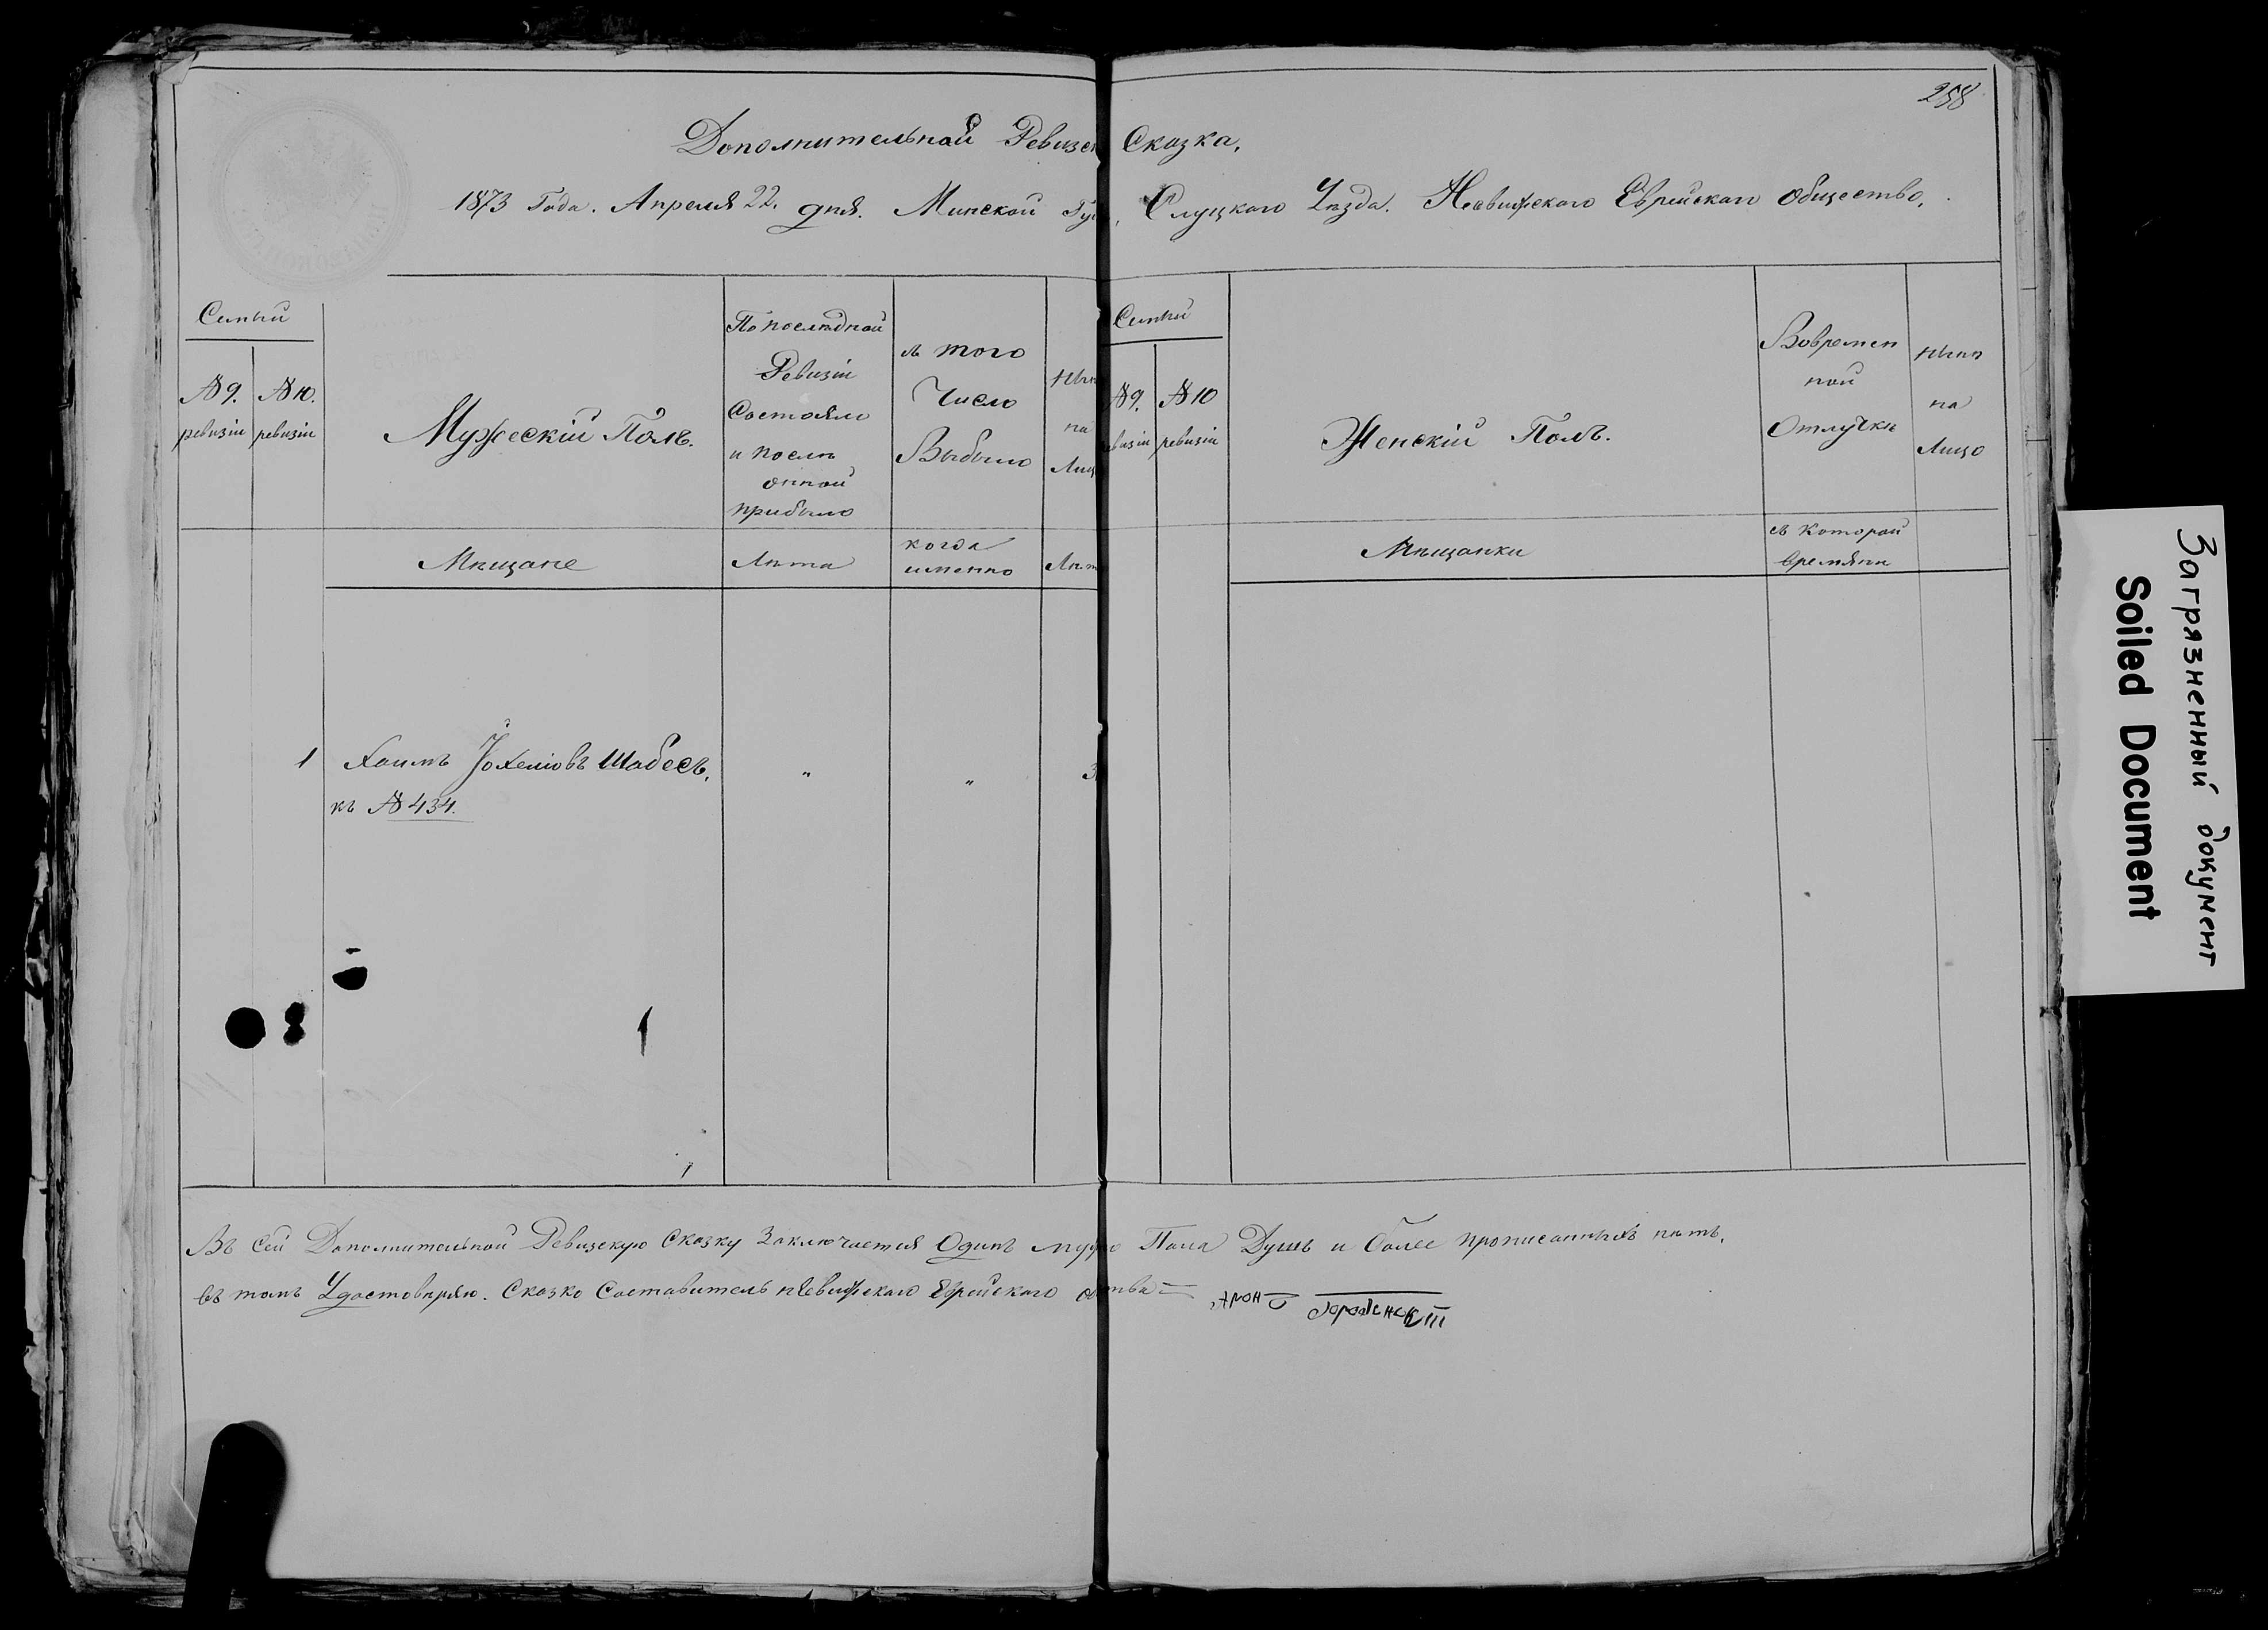 258
Дополнительной Ревизс Сказка.
1873 Года. Апреля 22. дня. Минской Гу Слуцкаго Уѣзда. Несвижскаго Еврейскаго Общество.
Семьи
№ 9. ревизіи
№ 10. ревизіи
Мужескій Полъ.
По послѣдной
Ревизіи
Состояло
и послѣ
онной
прибыло
Того
Число
Выбыло
на
Лиц
Семьи
№ 9. визіи
№ 10 ревизіи
Женскій Полъ.
Вовремен
ной
Отлучкѣ
нынѣ
на
Лицо
Мѣщане
Лѣта
когда
именно
Лѣт
Мѣщанки
съ которой
времяни
1 Хаимъ Іохелiовъ Шабесъ. " " 3
къ № 434.
Въ сей Дополнительной Ревизскую Сказку Заключается Одинъ муж Пола Душъ и более прописанныхъ нѣтъ.
въ томъ Удостовѣряю. Сказко Составитель Несвижскаго Еврейскаго ства
Soiled Document
Загрязненный документ